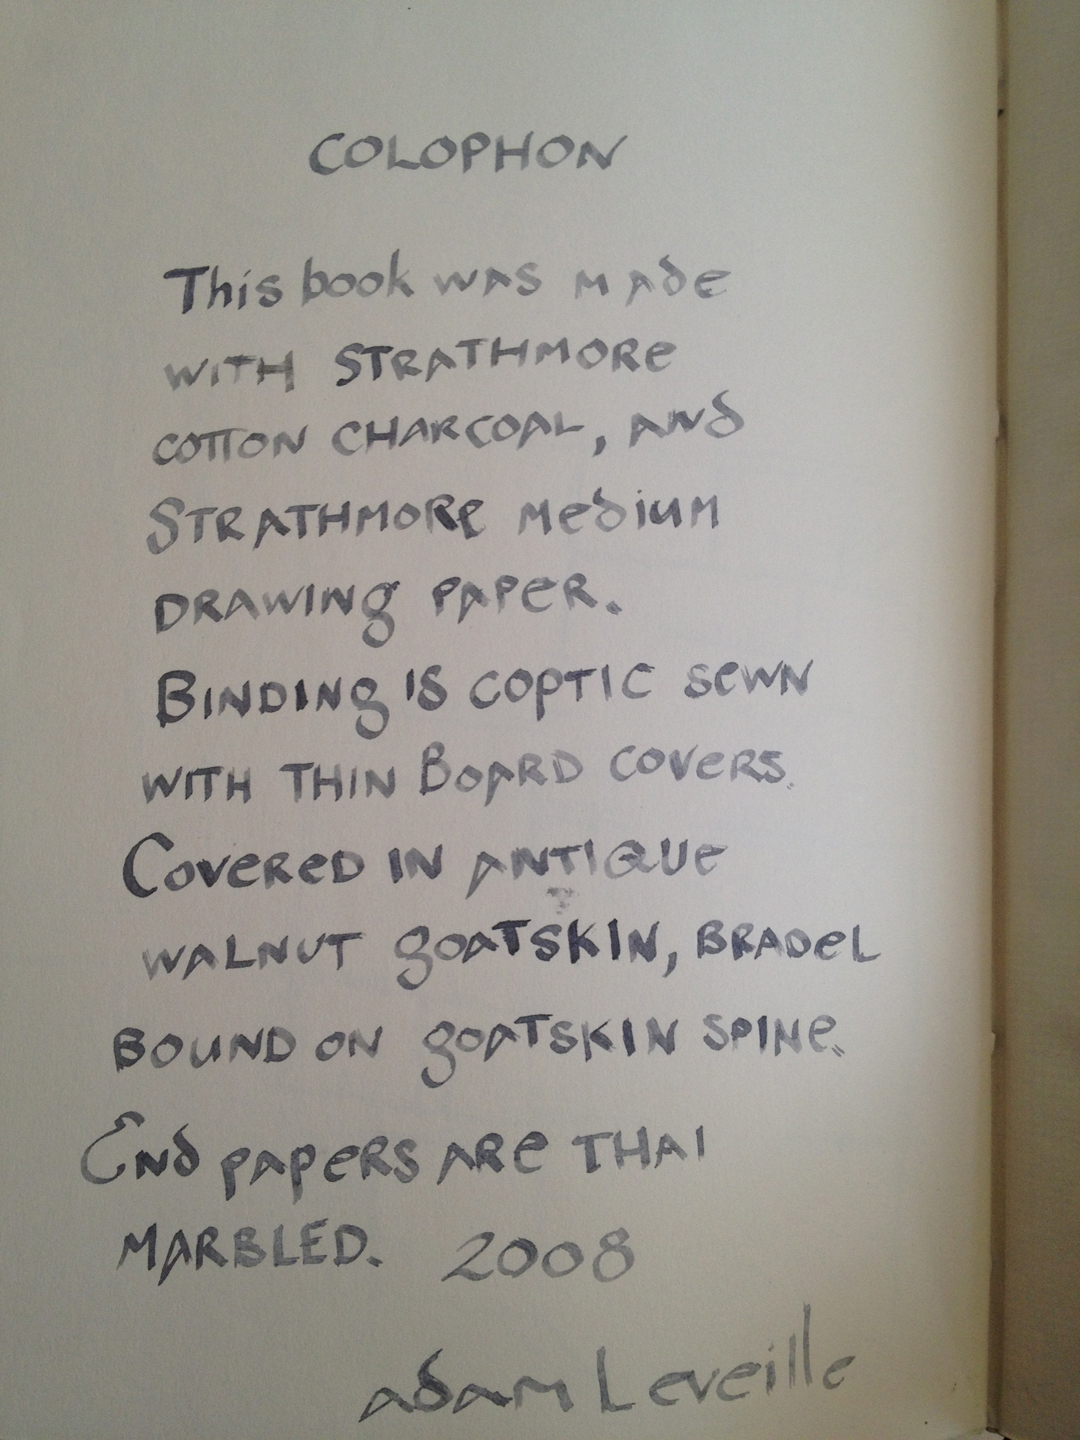 COLOPHON
This book was made
with STRATHMORE
COTTON CHARCOAL, AND
STRATHMORE medium
DRAWING PAPER.
BINDING IS COPTIC SEWN
WITH THIN BOARD COVERS.
COVERED IN ANTIQUE
WALNUT GOATSKIN, BRADEL
BOUND ON GOATSKIN SPINE.
End papers are THAI
MARBLED. 2008
Adam Leveille